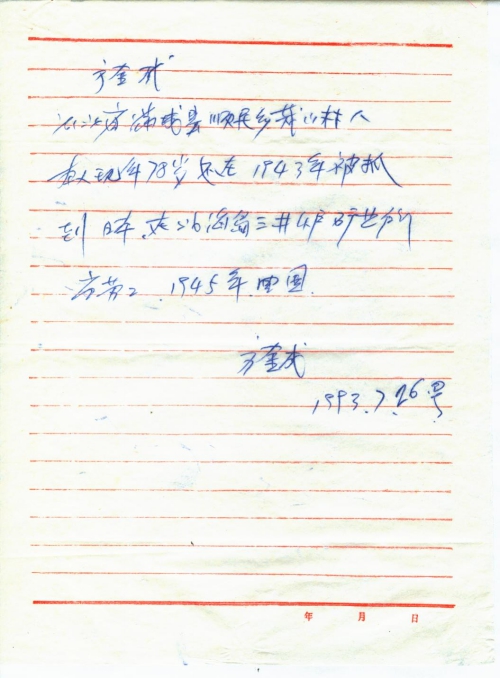 方奎武
河北省满城县顺民乡山村人
本人现年78岁还在1943年被抓
到日本.在北海道三井芦矿业所
当劳工.1945年.回国.
方奎武
1993.7.26号
年 月 日